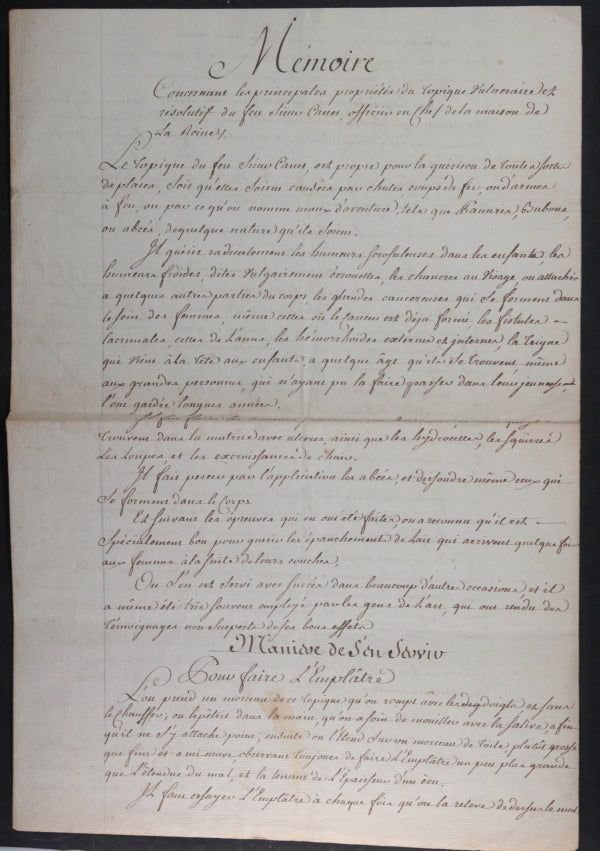 Mémoire
Concernant les principales propriétés du Topique Vulneraire et
résolutif du feu Sieur Canet, officier en Chef de la maison de
La Reine.
Le topique du feu Sieur Canet, est propre pour la guérison de toutes sortes
de playes, soit qu'elles soient causées par chutes, coups de fer, ou d'armes
à feu, ou par ce qu'on nomme maux d'aventure, tels que Panaris, bonbons,
ou abcés, de quelque nature qu'ils soient.
Il guérit radicalement les humeurs scrofuleuses dans les enfants, les
humeurs froides, dites Vulgairement écrouelles, les chancres au Visage, ou attachés
a quelques autres parties du corps, les glandes cancereuses qui se forment dans
le sein des femmes, même celles où le cancer est déjà formé, les fistules
lacrimales, celles de l'anus, les hémorrhoïdes externes et internes, la teigne
qui vient à la tête aux enfants, a quelque âge qu'ils se trouvent, même
aux grandes personnes, qui n'ayant pu la faire passer dans leur jeunesse,
l'ont gardée longues années.
trouvent dans la matrice avec ulceres, ainsi que les hydrocelles, les squirres
les Loupes et les excroissances de chair.
Il fait percer par l'application les abcés, et dissoudre même ceux qui
se forment dans le Corps.
Et suivant les épreuves qui en ont été faites, on a reconnu qu'il est
Spécialement bon pour guérir les épanchements de Lait qui arrivent quelque fois
aux femmes à la suite de leurs couches.
On s'en est servi avec succès dans beaucoup d'autres occasions, et il
a même été très souvent employé par les gens de l'art, qui ont rendu des
témoignages non suspects de ses bons effets.
Maniere de s'en Servir
Pour faire L'Emplâtre
L'on prend un morceau de ce topique qu'on rompt avec les doigts, et sans
le Chauffer; on le pétrit dans la main, qu'on a soin de mouiller avec la salive afin
qu'il ne s'y attache point; ensuite on l'étend sur un morceau de toile, plutôt grosse
que fine et a mi-usée, observant toujours de faire L'Emplâtre un peu plus grande
que L'étendue du mal, et la tenant de L'Epaisseur d'un écu.
Il faut essuyer L'Emplâtre à chaque fois qu'on la releve de dessus le mal